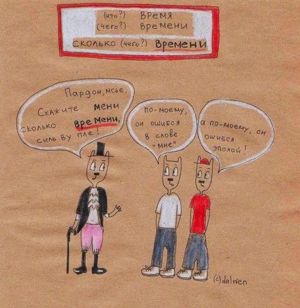 (что?) ВРЕМЯ
(чего?) ВРЕМЕНИ
СКОЛЬКО (чего?) ВРЕМЕНИ
Пардон, мсье,
Скажите мени
сколько времени,
силь ву пле!
по-моему,
он ошибся
в слове
"мне"
а по-моему, он
ошибся
эпохой!
(c) dalwen